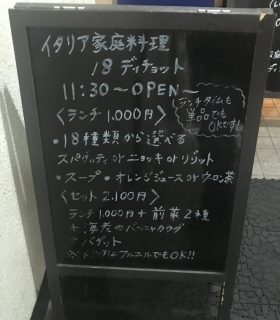 イタリア家庭料理
18 ディチョット
11:30〜OPEN〜
〈ランチ 1.000円〉
ランチタイムも
単品でも
OKです!
・18種類から選べる
スパゲッティ or ニョッキ or リゾット
・スープ・オレンジジュース or ウーロン茶
〈セット 2.100円〉
ランチ 1.000円 + 前菜2種
+ 海老のバーニャカウダ
+ バゲット
※ ドリンクはアルコールでもOK!!